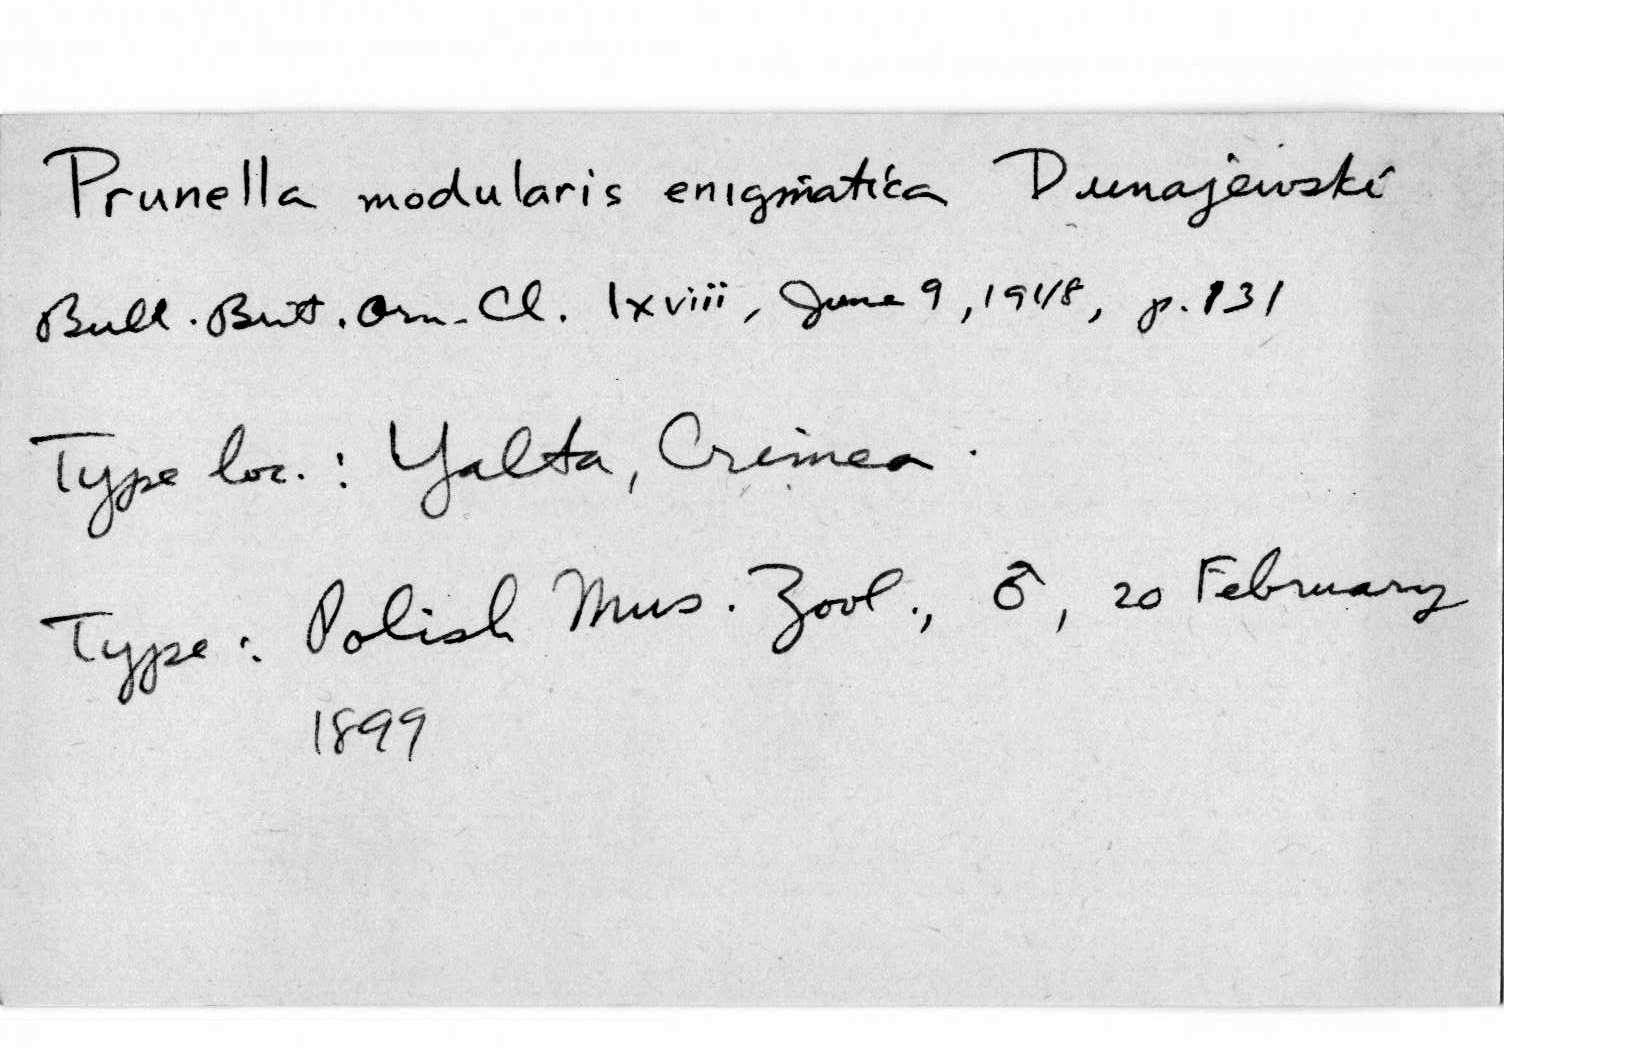 Prunella modularis enigmatica Dunajewski
Bull. Brit. Orn. Cl. lxviii, June 9, 1948, p. 131
Type loc.: Yalta, Crimea.
Type: Polish Mus. Zool., ♂, 20 February
1899